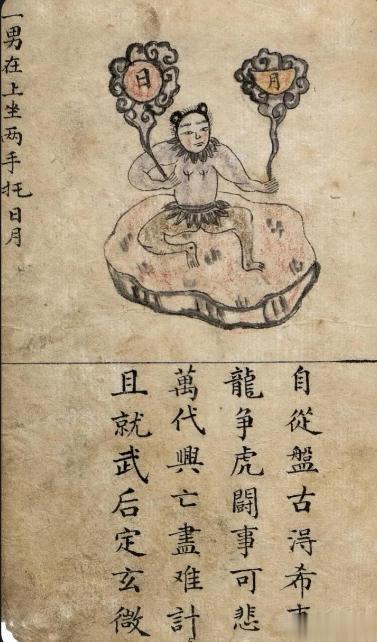 一男在上坐两手托日月
日
月
自從盤古得希
龍争虎鬪事可悲
萬代興亡盡难計
且就武后定玄微